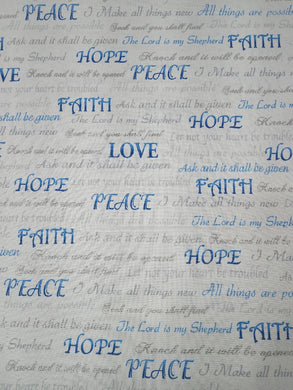 PEACE I Make all things new All things are possible
Ask and it shall be given The Lord is my Shepherd Seek and you shall find FAITH
HOPE Knock and it will be opened
LOVE Knock and it will be opened PEACE I Make all things new
FAITH Ask and it shall be given The Lord is my Shepherd
shall be given Seek and you shall find HOPE Knock
all things new All things are possible Let not your heart be troubled
Ask and it shall be given Seek and you shall find LOVE Ask and it shall be given
HOPE Let not your heart be troubled FAITH Knock
PEACE I Make all things new All things are possible
The Lord is my Shepherd Seek
FAITH Ask and it shall be given Knock and it will be opened
Seek and you shall find Let not your heart be troubled HOPE I Make
PEACE I Make all things new All things are
Ask and it shall be given Seek and you shall find The Lord is my Shepherd FAITH
my Shepherd HOPE Knock and it will be opened
will be opened PEACE I Make all things new